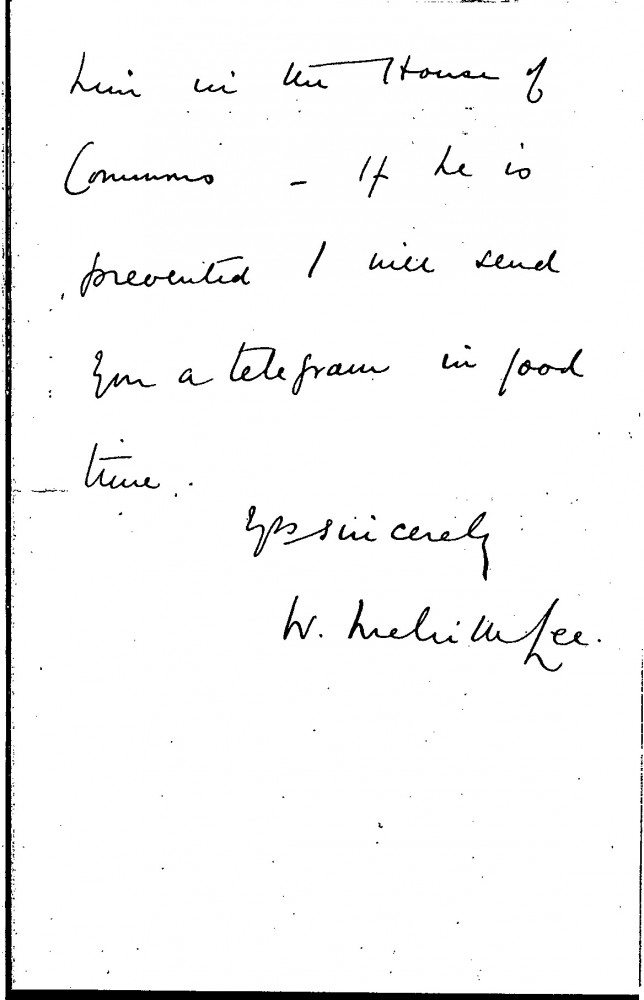 him in the House of
Commons – If he is
prevented I will send
you a telegram in good
time.
Yrs sincerely
W. Melville Lee.